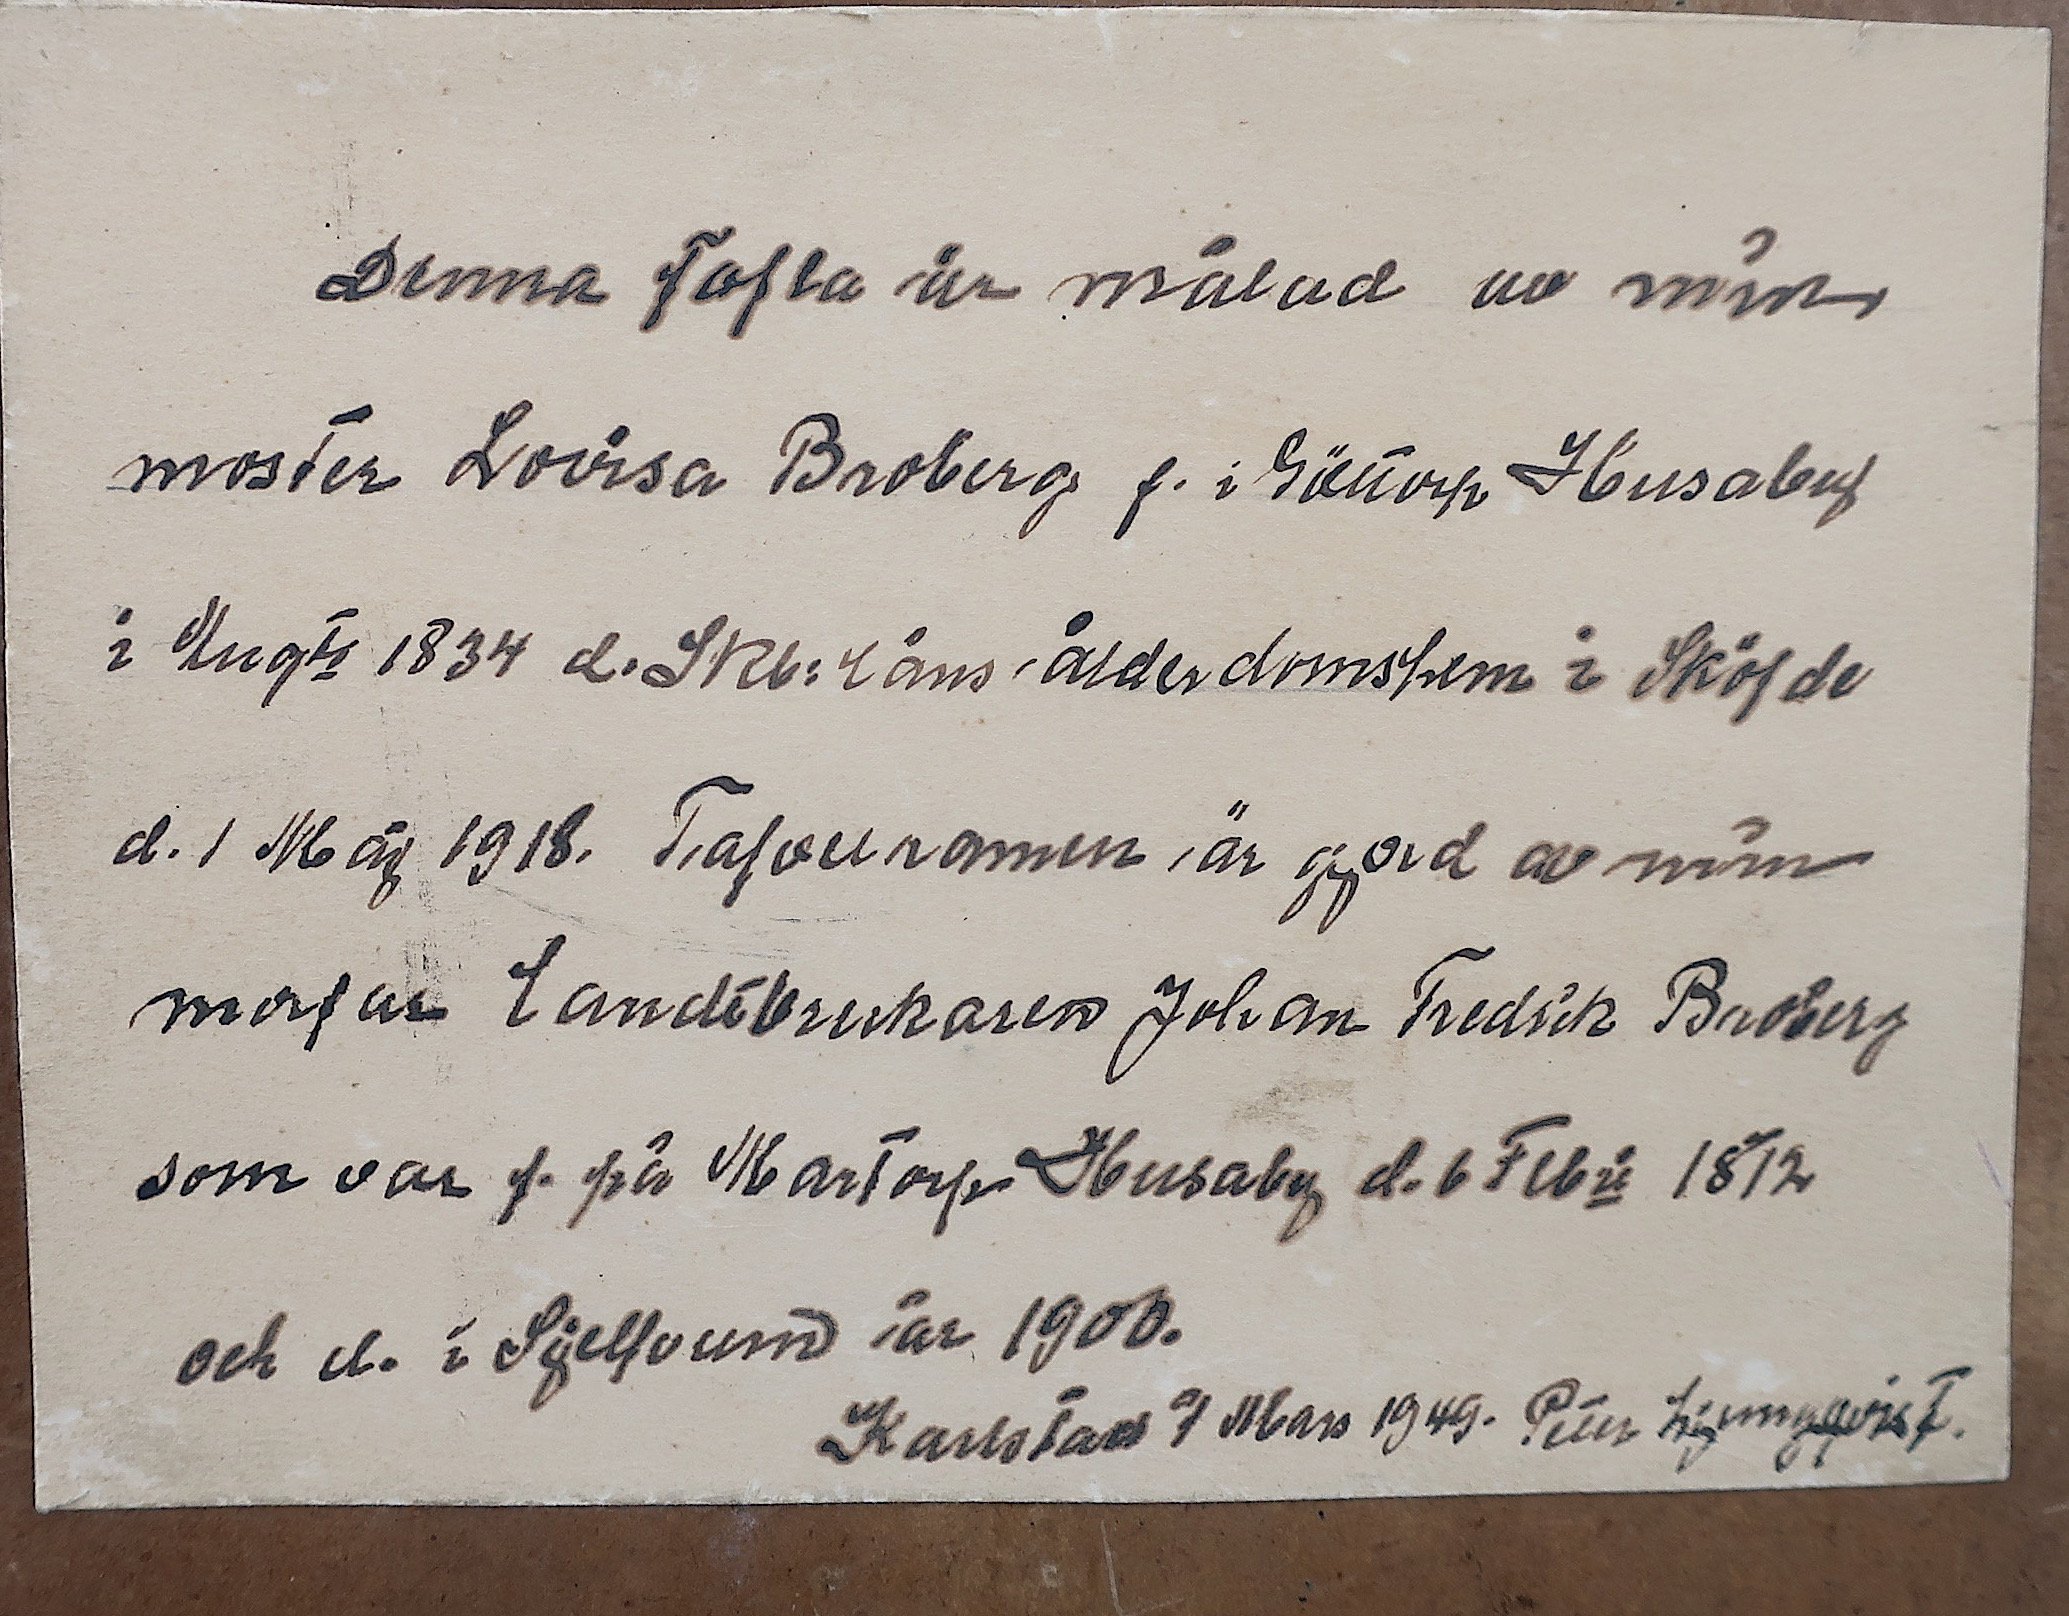 Denna tafla är målad av min
moster Lovisa Broberg f. i Husaby
i Augti 1834 d. Skb: läns ålderdomshem i Sköfde
d. 1 Maj 1918. Tafvelramen är gjord av min
morfar Landtbrukaren Johan Fredrik Broberg
som var f. på Martorp Husaby d. 6 Febri 1812
och d. i Sjelfvum år 1900.
Karlstad Mars 1949. Peter Ljungqvist.